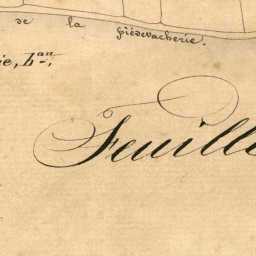 de la piédevacherie.
ie, bon.
Feuille